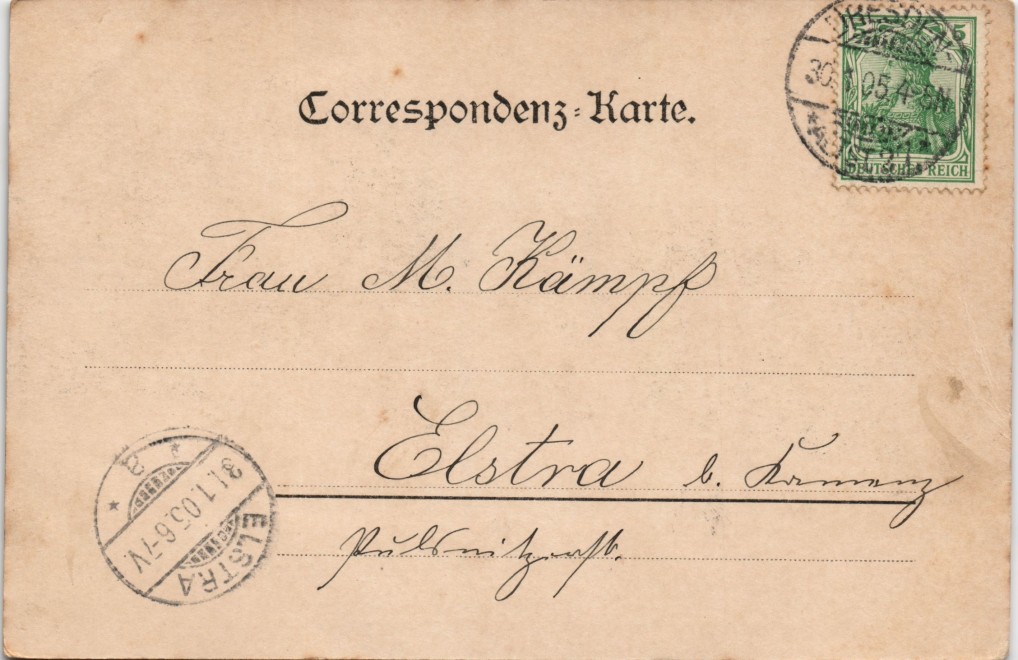 DRESDEN-
30.1.05.4-5N
5
DEUTSCHES REICH
Correspondenz-Karte.
Frau M. Kämpf
Elstra b. Kamenz
Pulsnitzerstr.
ELSTRA
31.1.05.6-7V.
a